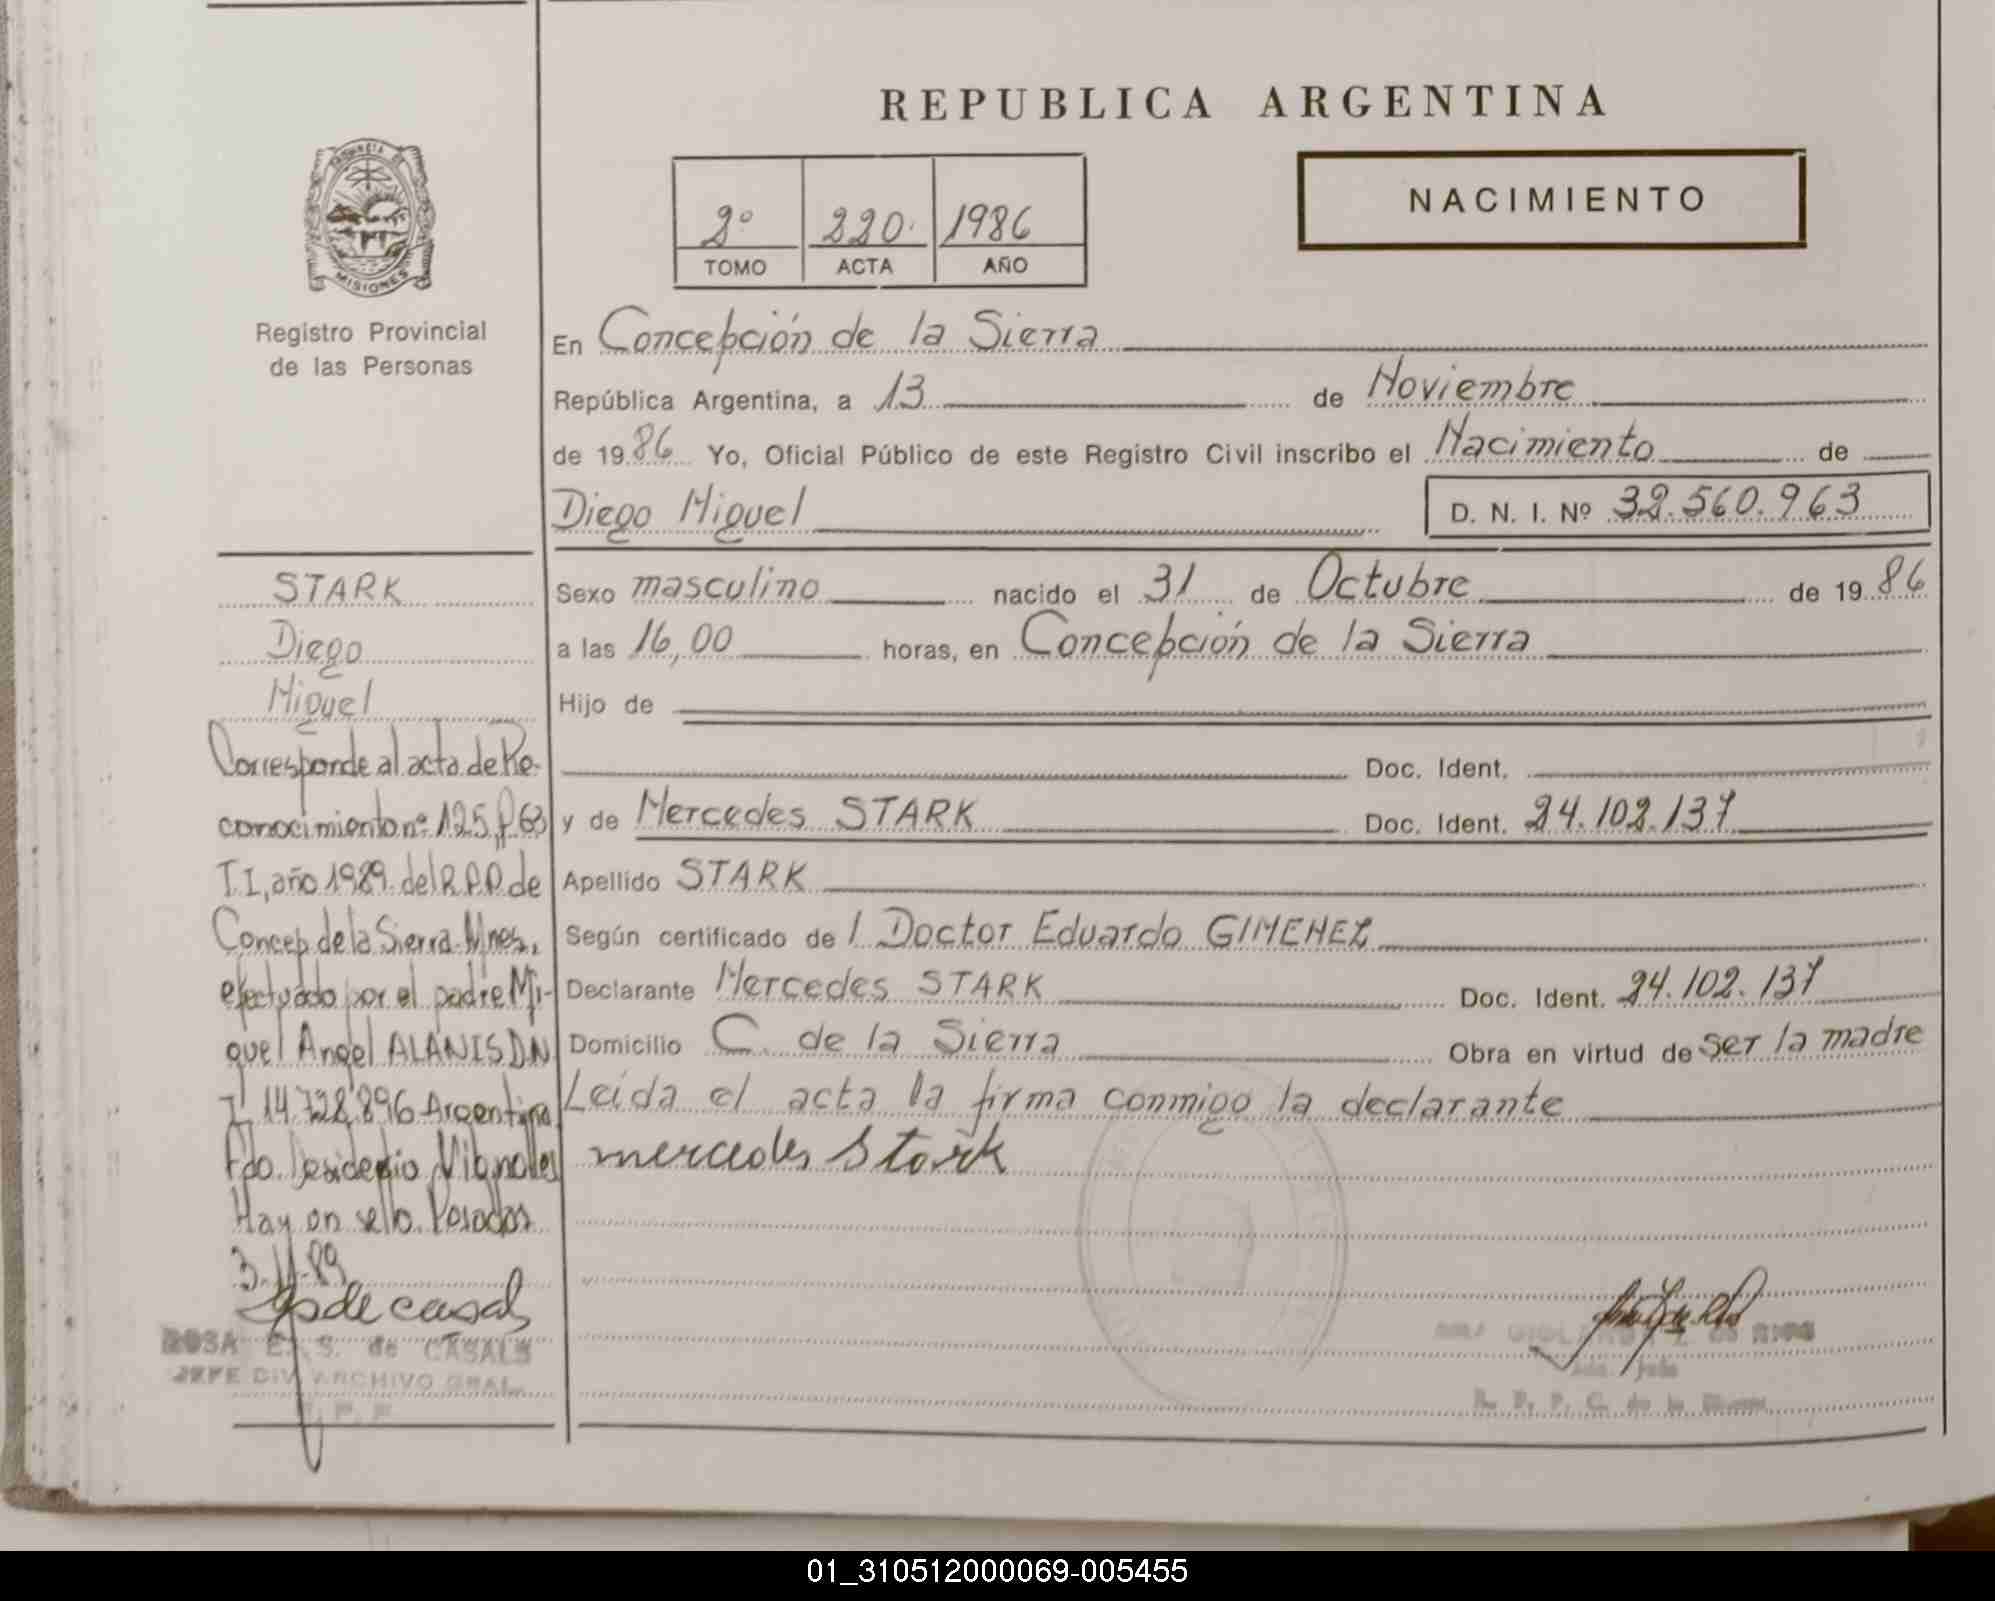 REPUBLICA ARGENTINA
NACIMIENTO
2º 220. 1986
TOMO ACTA AÑO
PROVINCIA DE
MISIONES
Registro Provincial
de las Personas
En Concepción de la Sierra
República Argentina, a 13 de Noviembre
de 1986 Yo, Oficial Público de este Registro Civil inscribo el Nacimiento de
Diego Miguel D. N. I. Nº 32.560.963
Sexo masculino nacido el 31 de Octubre de 1986
a las 16,00 horas, en Concepción de la Sierra
Hijo de
Doc. Ident.
y de Mercedes STARK Doc. Ident. 24.102.137
Apellido STARK
Según certificado de l Doctor Eduardo GIMENEZ
Declarante Mercedes STARK Doc. Ident. 24.102.137
Domicilio C. de la Sierra Obra en virtud de ser la madre
Leída el acta la firma conmigo la declarante
mercedes Stark
STARK
Diego
Miguel
Corresponde al acta de Re-
conocimiento nº 125, fº 63
T I, año 1989 del R.P.P. de
Concep. de la Sierra-Mnes,
efectuado por el padre Mi-
guel Angel ALANIS DN
I 14.728.896 Argentina
Fdo. Desiderio
Hay un sello. Posadas
3-11-89
de casals
ROSA E. S. de CASALS
JEFE DIV ARCHIVO GRAL.
R. P. P.
R. P. P. C. de la Sierra
01_310512000069-005455